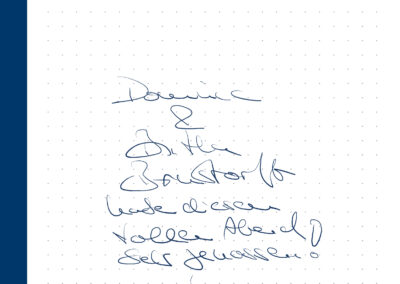 Dominic
&
Britta
Bernstorff
habe diesen
tollen Abend
sehr genossen!